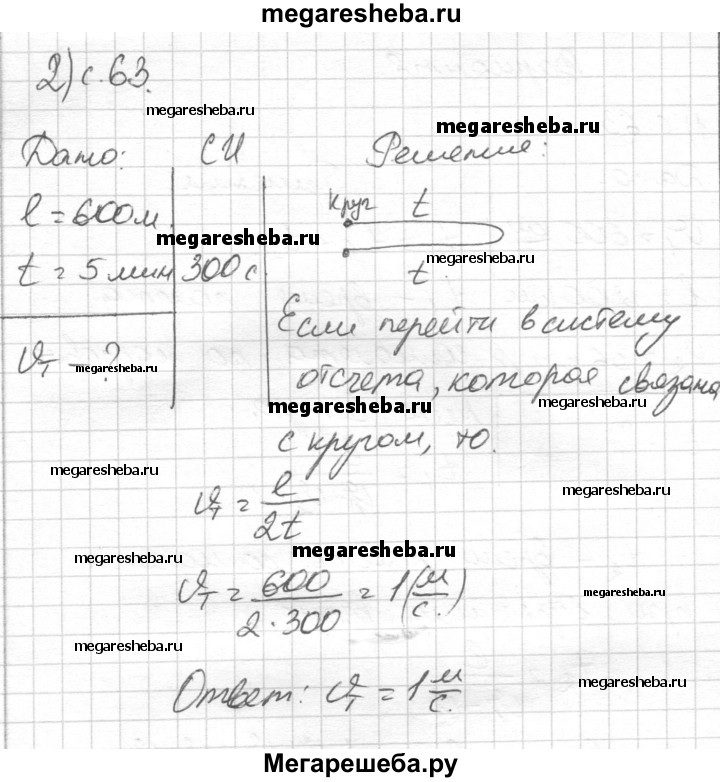 megaresheba.ru
2) с. 63.
megaresheba.ru
megaresheba.ru
Дано: СИ Решение:
l = 600 м круг t
megaresheba.ru
megaresheba.ru
t = 5 мин 300 с t
Если перейти в систему
υт - ?
megaresheba.ru
отсчета, которая связана
megaresheba.ru
megaresheba.ru
с кругом, то.
megaresheba.ru
megaresheba.ru
υт = l/2t
megaresheba.ru
megaresheba.ru
υт = 600/2·300 = 1(м/с.)
megaresheba.ru
megaresheba.ru
Ответ: υт = 1 м/с.
megaresheba.ru
Мегарешеба.ру